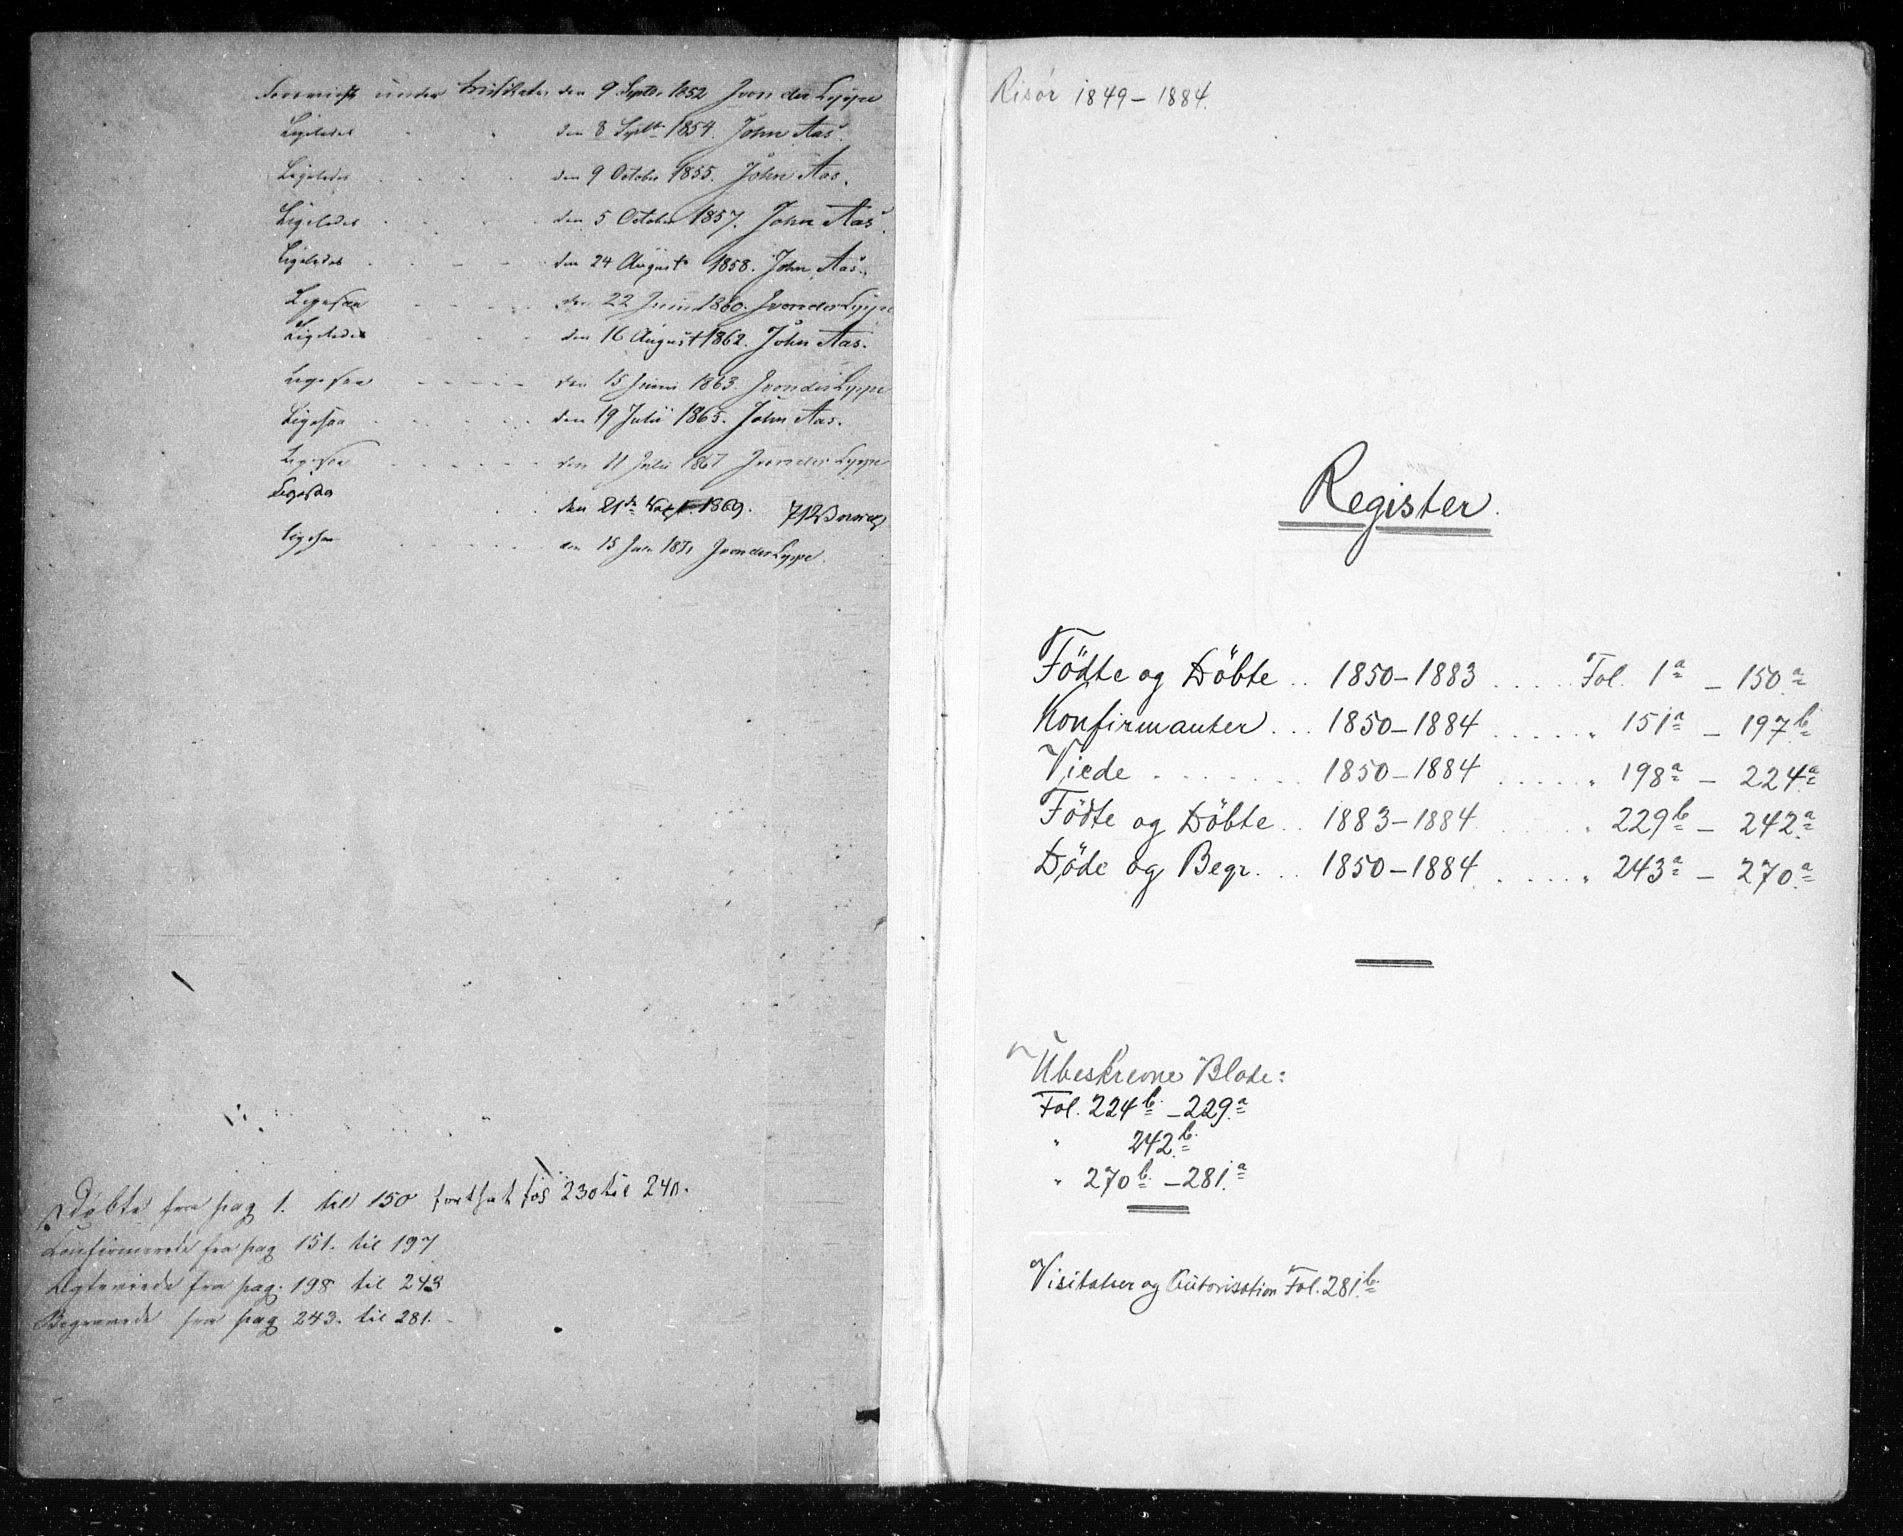 under Visitatsen den 9 Septbr 1852 J von der Lyppe
Ligeledes den 8 Septbr 1854. John Aas.
Ligeledes den 9 October 1855. John Aas.
Ligeledes den 5 October 1857. John Aas.
Ligeledes den 24 August 1858. John Aas.
Ligesaa den 22 Juni 1860. J von der Lyppe
Ligeledes den 16 August 1862. John Aas.
Ligesaa den 15 Juni 1863. J von der Lyppe
Ligesaa den 19 Julii 1865. John Aas.
Ligesaa den 11 Julii 1867 J von der Lyppe
Ligesaa den 21de 1869.
Ligesaa den 15 1871 J von der Lyppe.
Døbte fra pag 1. til 150 fortsat fol 230 til 240.
Confirmerede fra pag 151. til 197
Ægteviede fra pag. 198 til 243
Begravede fra pag 243. til 281.
Risør 1849-1884.
Register.
Födte og Döbte .. 1850-1883 .... Fol. 1a - 150a
Konfirmanter ... 1850-1884 ..... " 151a - 197b
Viede ....... 1850-1884 ..... " 198a - 224a
Födte og Döbte .. 1883-1884 " 229b - 242a
Döde og Begr. ... 1850-1884 ..... " 243a - 270a
Ubeskrevne Blade:
Fol. 224b - 229a
" 242b
" 270b - 281a
Visitatser og Autorisation Fol. 281b